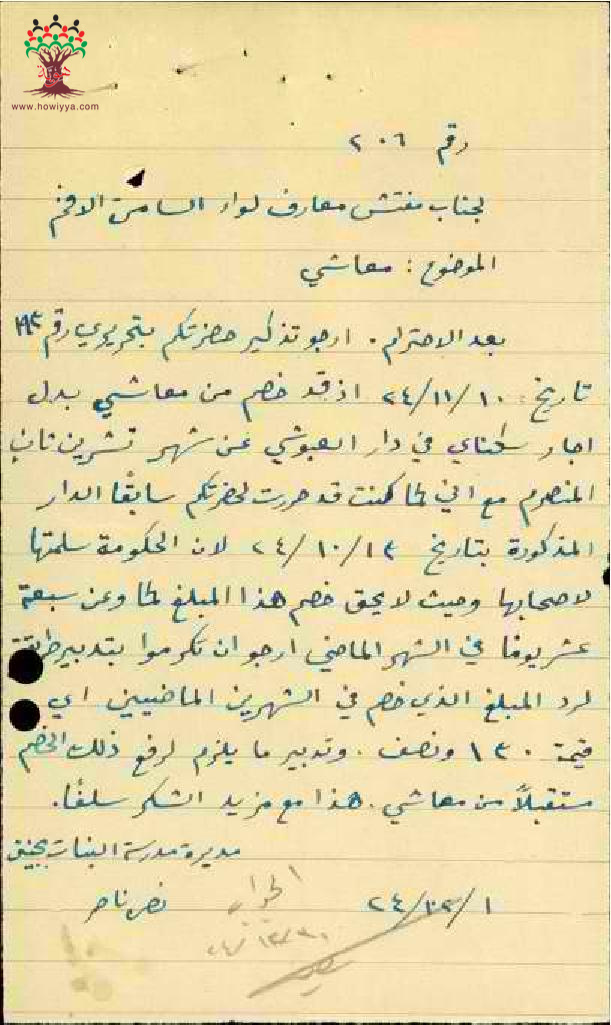 www.howiyya.com
رقم ٢٠٦
لجناب مفتش معارف لواء السامرة الافخم
الموضوع : معاشي
بعد الاحترام . ارجو تذكير حضرتكم بتحريري رقم
تاريخ ٢٤/١١/١٠ اذ قد خصم من معاشي بدل
اجار سكناي في دار العبوشي عن شهر تشرين ثان
المنصرم مع اني كما كنت قد حررت لحضرتكم سابقًا الدار
المذكورة بتاريخ ٢٤/١٠/١٣ لان الحكومة سلمتها
لاصحابها وحيث لا يحق خصم هذا المبلغ كما وعن سبعة
عشر يومًا في الشهر الماضي ارجو ان تكرموا بتدبير
لرد المبلغ الذي خصم في الشهرين الماضيين اي
قيمة ١٣٠ ونصف . وتدبير ما يلزم لرفع ذلك الخصم
مستقبلاً من معاشي . هذا مع مزيد الشكر سلفًا .
مديرة مدرسة البنات بجنين
٢٤/١٢/١
نصر ناصر
الجواب
٢٤/١٢/٣٠